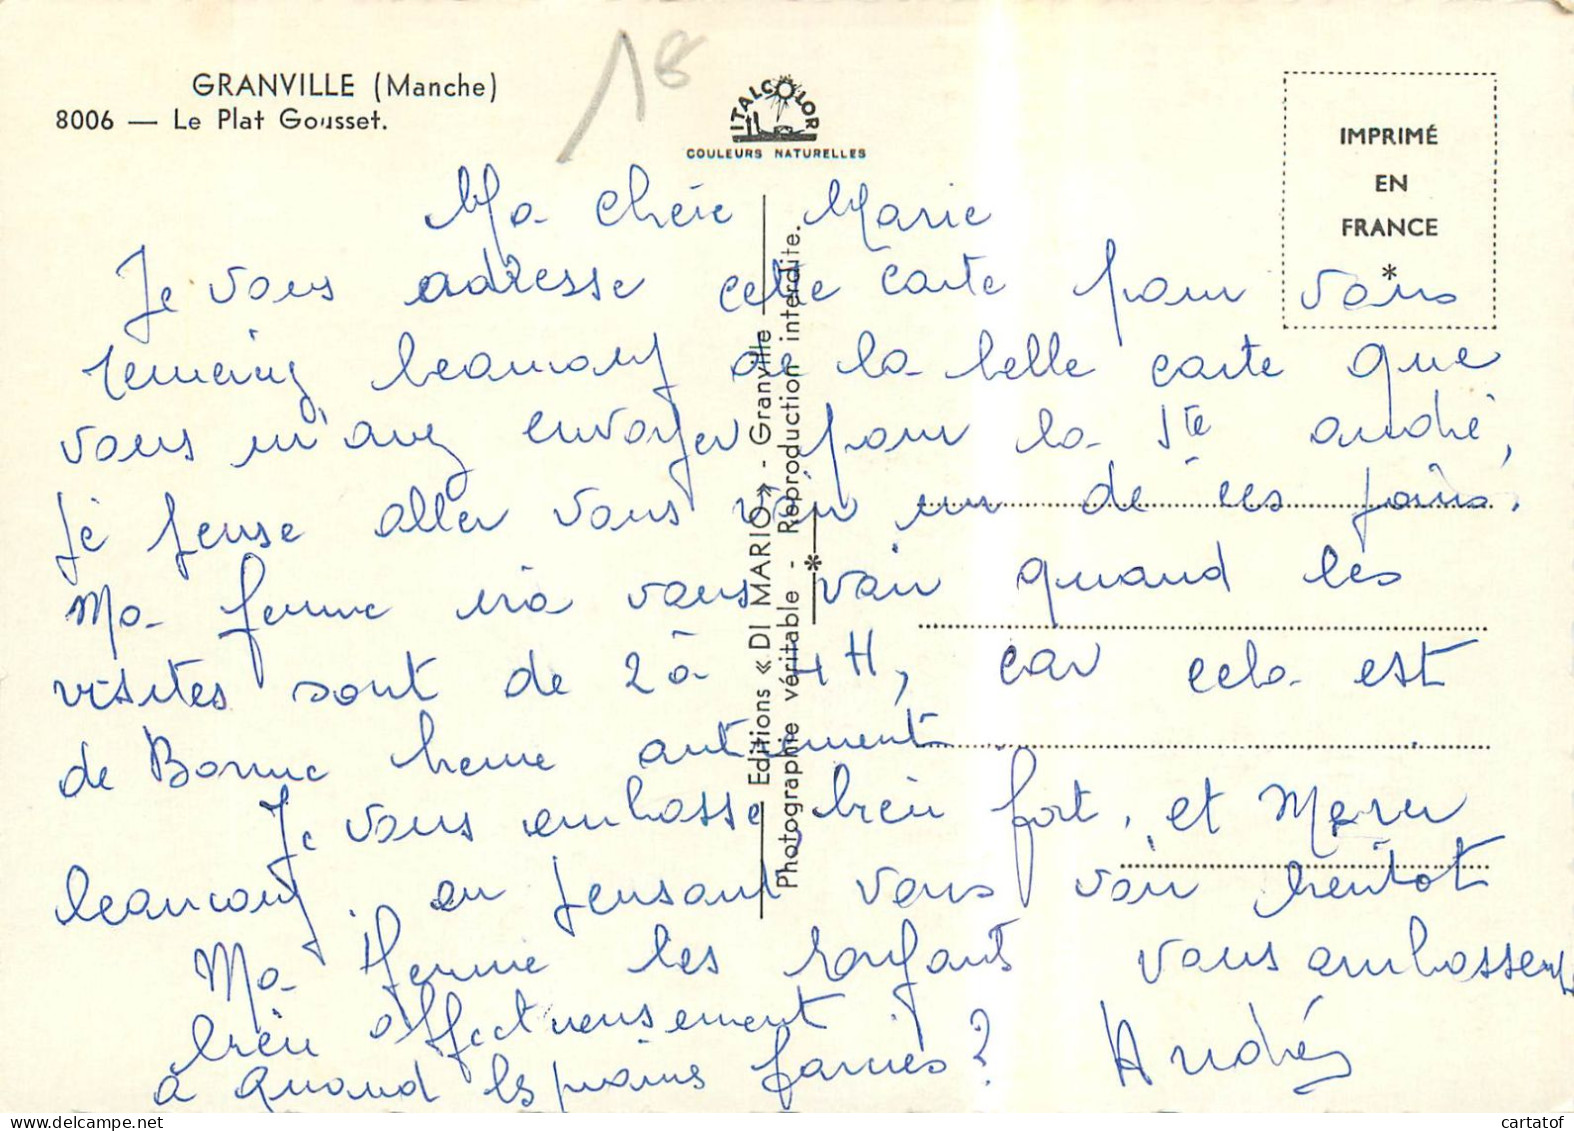 GRANVILLE (Manche)
8006 — Le Plat Gousset.
18
ITALCOLOR
COULEURS NATURELLES
IMPRIMÉ
EN
FRANCE
*
Editions « DI MARIO » - Granville
Photographie véritable - Reproduction interdite.
Ma chérie Marie
Je vous adresse cette carte pour vous
remercier beaucoup de la belle carte que
vous m'avez envoyer pour la Ste andré,
je pense aller vous voir un de ces jours.
Ma femme ira vous voir quand les
visites sont de 2 à 4H, car cela est
de Bonne heure autrement
Je vous embrasse bien fort, et Merci
beaucoup. en pensant vous voir bientot
Ma femme les enfants vous embrassent
bien affectueusement
a quand les farcies ?
André
cartatof